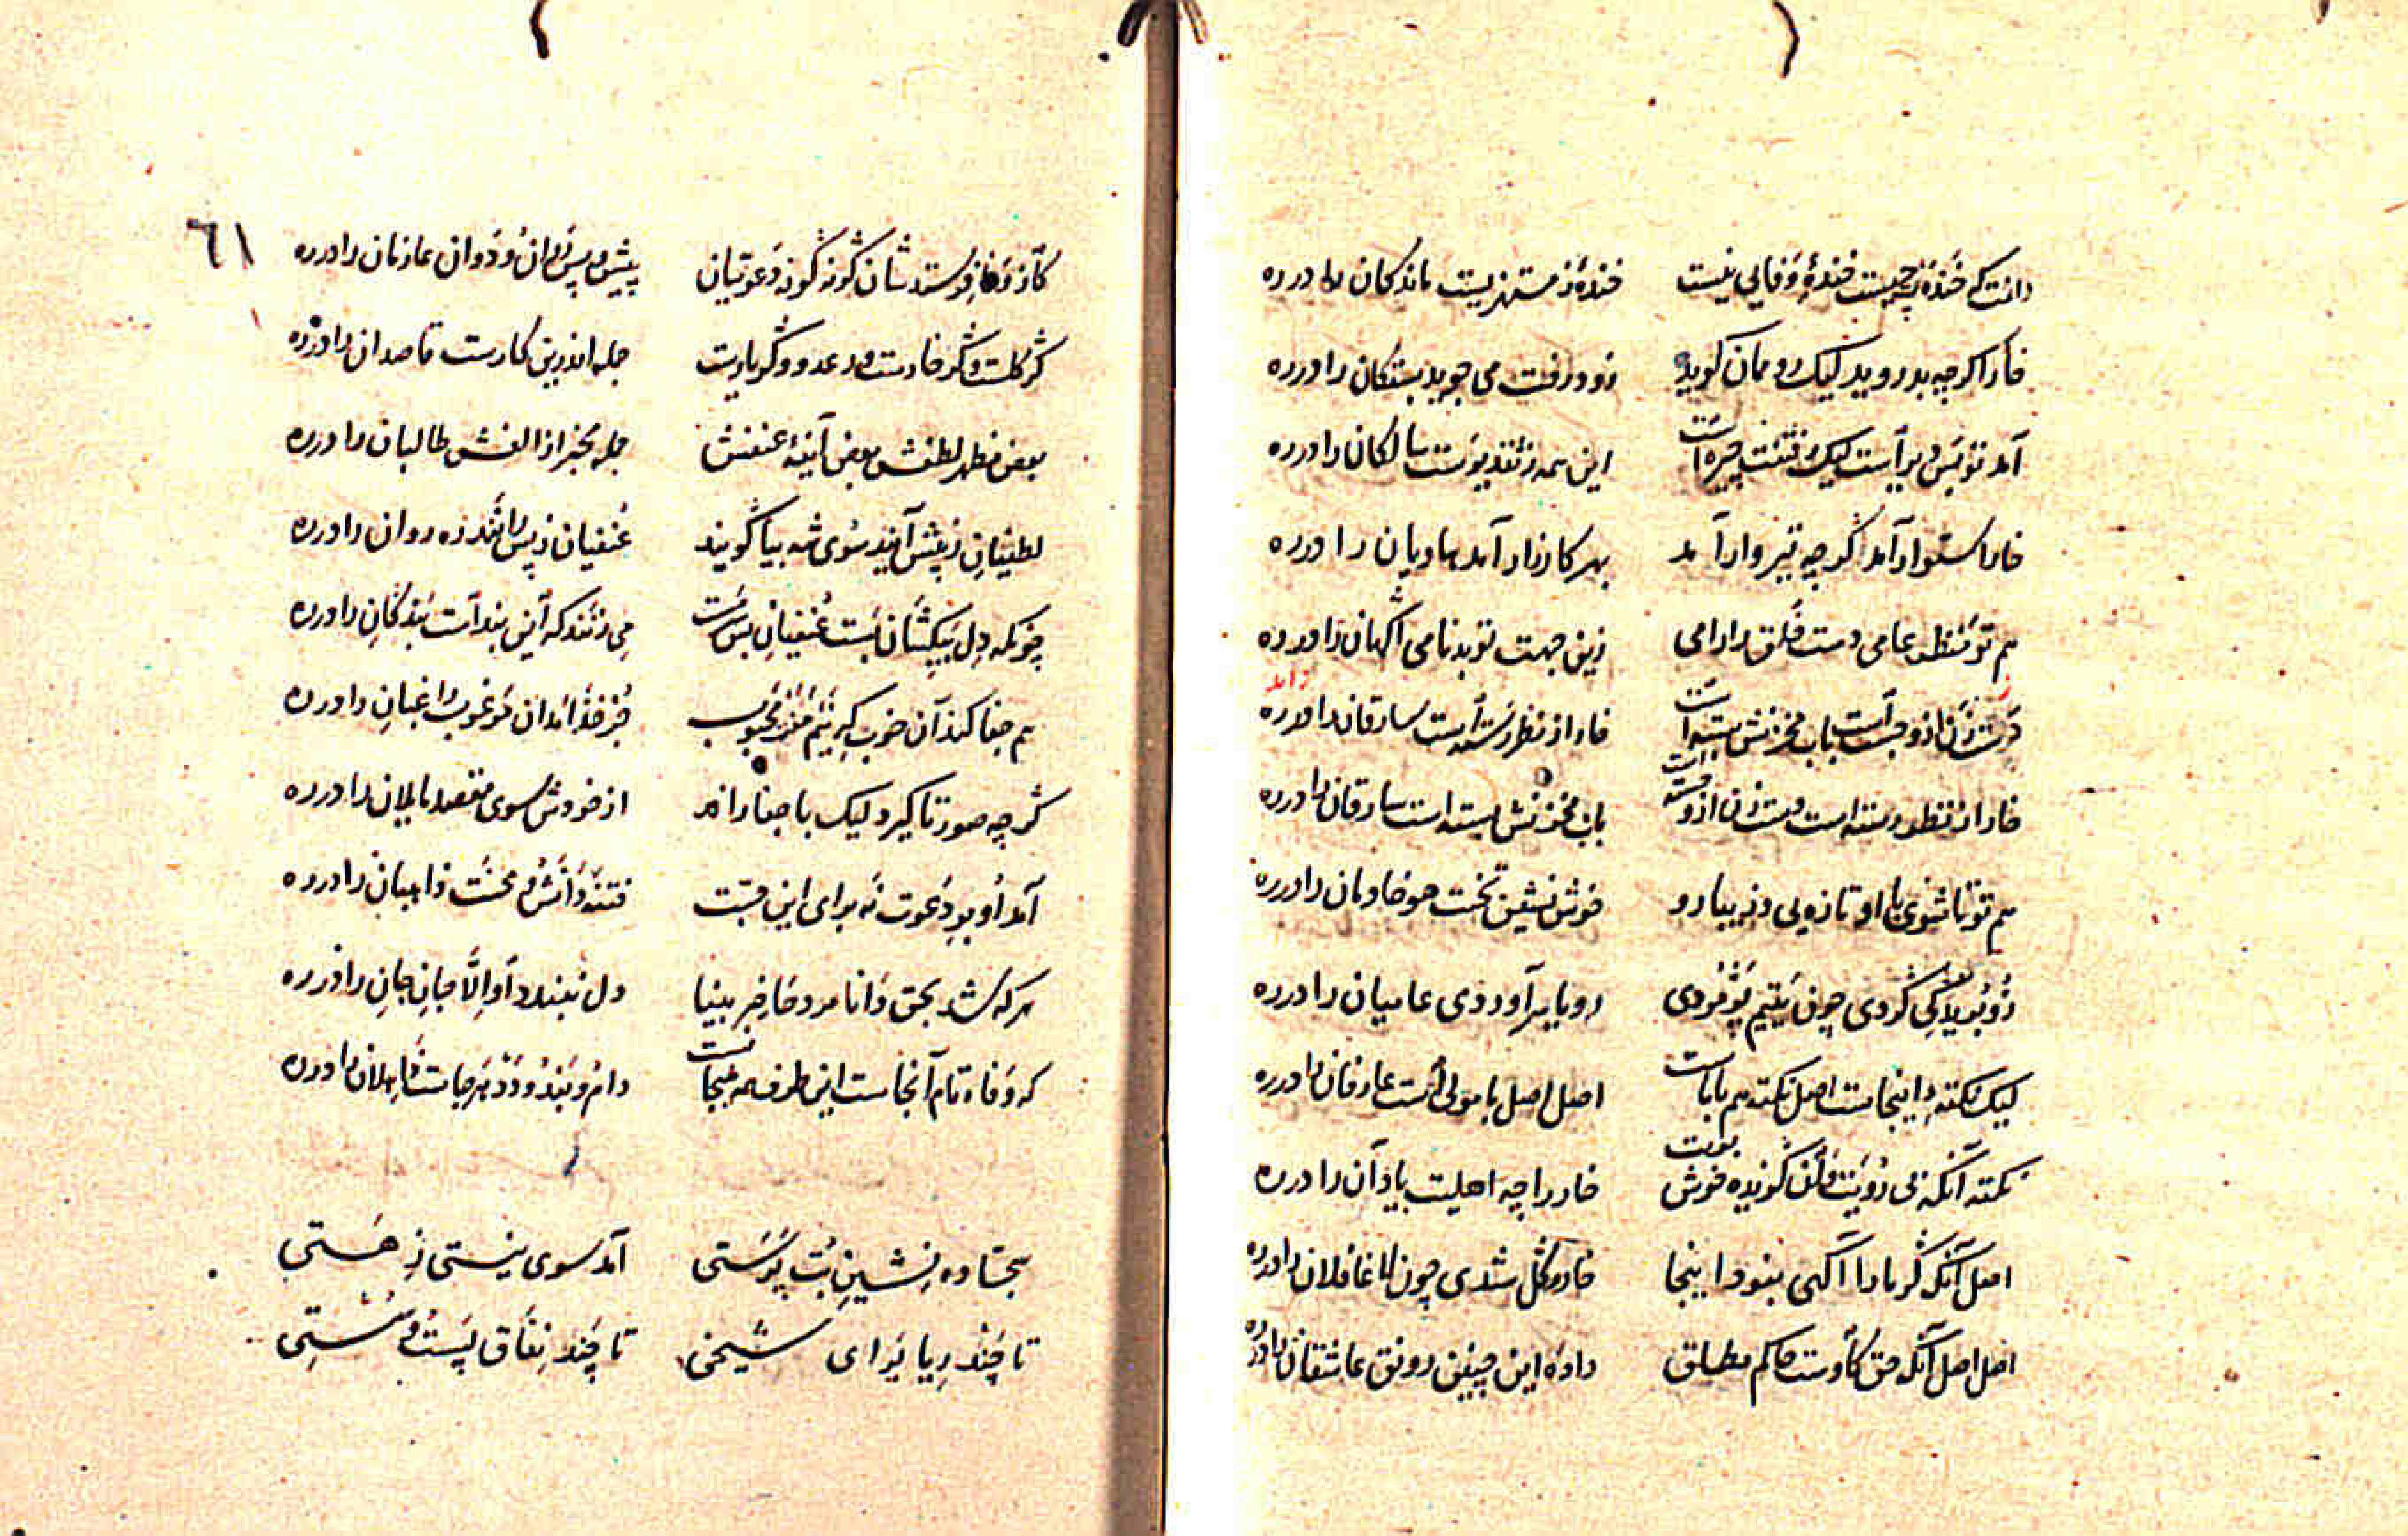 دانت که خنده چیست خندهٔ وفایی نیست خندهٔ مستهزیست ماندکان را در ره
خار اگرچه بد روید لیک رومان کوید زود رفت می جوید بستکان را در ره
آمد تو پس دیر است لیک این همه ز تقدیرست سالکان را در ره
خار استوار آمد گرچه تیروار آمد بهر کارزار آمد هادیان را در ره
هم تو منظر عامی دست خلق را رامی زین جهت تو بدنامی آکهان را در ره
دست زن ازو جسته است باب مخزنش بسته است خار از نظر رسته است سارقان را در ره
خار از نظر رسته است دست زن ازو جسته است باب مخزنش بسته است سارقان را در ره
هم تو تا شوی با او تازه یی و زیبا رو خوش نشین تخت هو خادمان را در ره
کردی چون یتیم رو بابر آوردی عامیان را در ره
لیک نکته اینجاست اصل نکته هم باباست اصل اصل با مولی است عارفان را در ره
نکته آنکه بی رویت خلق کویده خوش بویت خار را چه اهلیت یاد آن را در ره
اصل آنکه گر ما را آکهی بنود اینجا خار و گل شدی چون لا غافلان را در ره
اصل اصل آنکه حق کاوست حاکم مطلق داده این چنین رونق عاشقان را در ره
٦١
شان گونه گونه دعوتیان پیش و پس روان و دوان عازمان را در ره
گر گلست و گر خارست ور عدو و گر یارست جمله اندرین کارست قاصدان را در ره
بعض مظهر لطفش بعض آینهٔ عنفش جمله مخبر از الفش طالبان را در ره
لطفیان ز پیش آیند سوی شه بیا گویند عنفیان ز پس رانند ره روان را در ره
چونکه دل عنفیان پس می زنند که این بند است بندکان را در ره
هم جفا کند آن خوب که نیم من محبوب مرغوب راغبان را در ره
گرچه صورتا گیرد لیک با جفا راند از خودش سوی مقصد مایلان را در ره
آمد او بر دعوت نه برای این فتنه دانش و محنت ذاهبان را در ره
هر که شد بحق دانا مرد حاضر بینا دل نبندد او الا جان جان را در ره
که وفاه تام آنجاست این طرف همه دام و بند و دد هر جاست جاهلان را در ره
سجاده نشین بت پرستی آمد سوی نیستی ز هستی
تا چند ریا برای شیخی تا چند نفاق پست و سستی